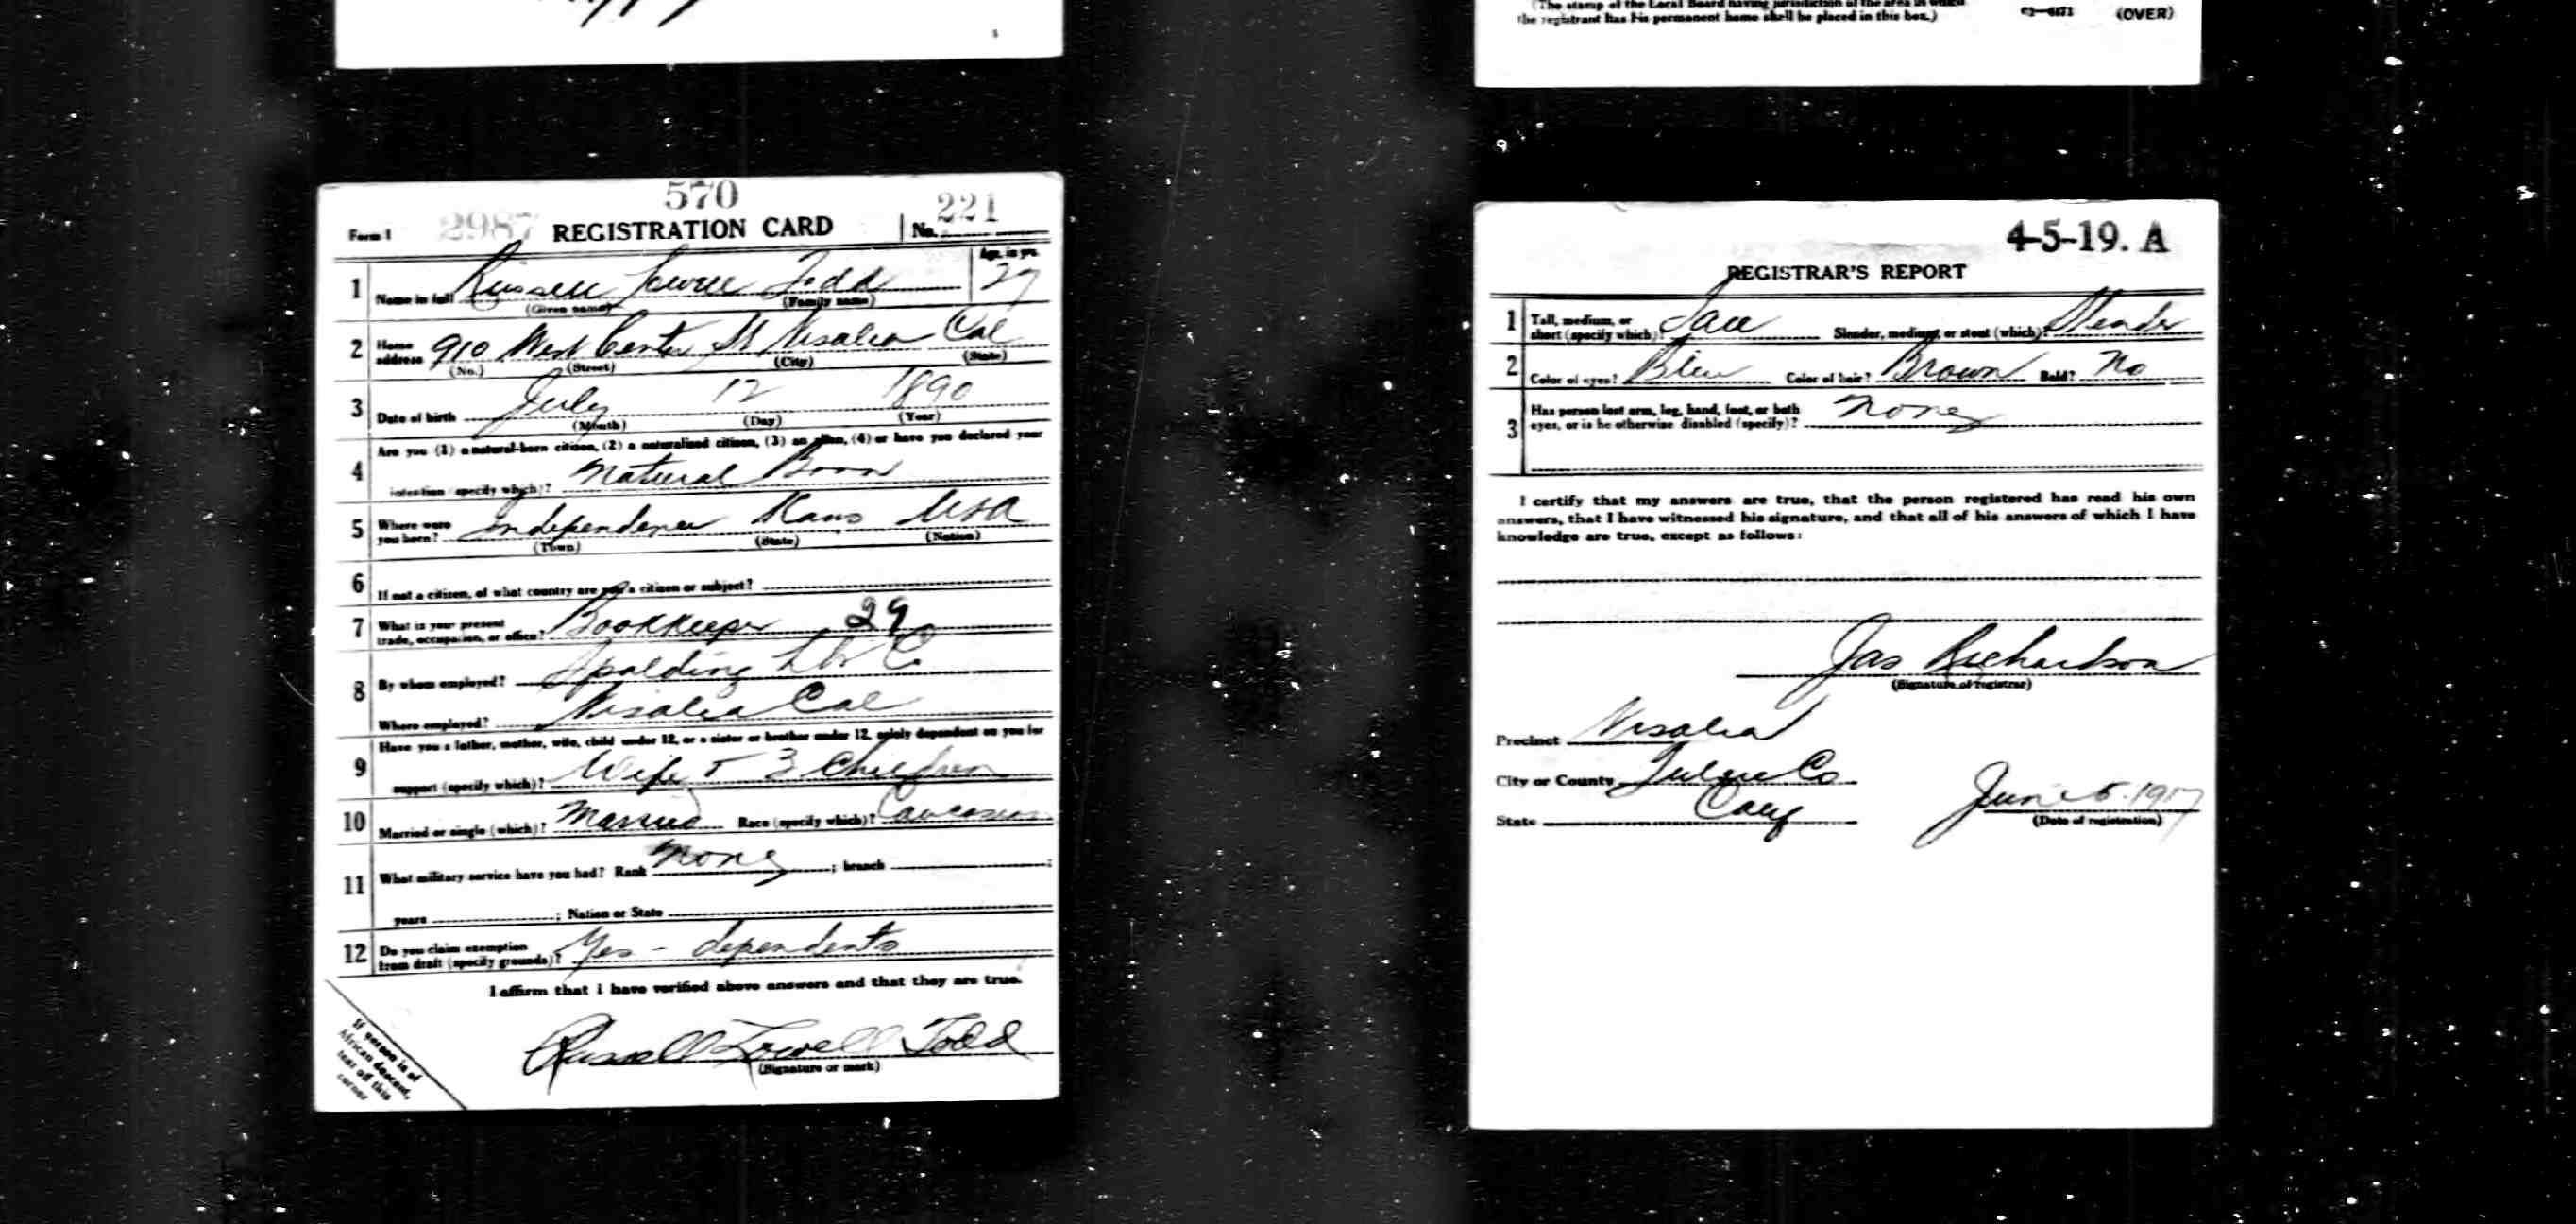 (The stamp of the Local Board having jurisdiction of the area in which
the registrant has his permanent home shall be placed in this box.)
(OVER)
570
Form 1 2987 REGISTRATION CARD No. 221
Age, in yrs.
1 Name in full Russell Lowell Todd 27
(Given name) (Family name)
2 Home address 910 West Center St Visalia Cal
(No.) (Street) (City) (State)
3 Date of birth July 12 1890
(Month) (Day) (Year)
4 Are you (1) a natural-born citizen, (2) a naturalized citizen, (3) an alien, (4) or have you declared your
intention (specify which)? Natural Born
5 Where were you born? Independence Kans USA
(Town) (State) (Nation)
6 If not a citizen, of what country are you a citizen or subject?
7 What is your present trade, occupation, or office? Bookkeeper 29
8 By whom employed? Spalding Lbr Co
Where employed? Visalia Cal
9 Have you a father, mother, wife, child under 12, or a sister or brother under 12, solely dependent on you for
support (specify which)? Wife + 3 Children
10 Married or single (which)? Married Race (specify which)? Caucasian
11 What military service have you had? Rank None ; branch ;
years ; Nation or State
12 Do you claim exemption from draft (specify grounds)? Yes - dependents
I affirm that I have verified above answers and that they are true.
Russell Lowell Todd
(Signature or mark)
If person is of
African descent,
tear off this
corner
4-5-19. A
REGISTRAR'S REPORT
1 Tall, medium, or short (specify which)? Tall Slender, medium, or stout (which)? Slender
2 Color of eyes? Blue Color of hair? Brown Bald? No
3 Has person lost arm, leg, hand, foot, or both
eyes, or is he otherwise disabled (specify)? None
I certify that my answers are true, that the person registered has read his own
answers, that I have witnessed his signature, and that all of his answers of which I have
knowledge are true, except as follows:
Jas Richardson
(Signature of registrar)
Precinct Visalia
City or County Tulare Co
State Calif June 5 1917
(Date of registration)